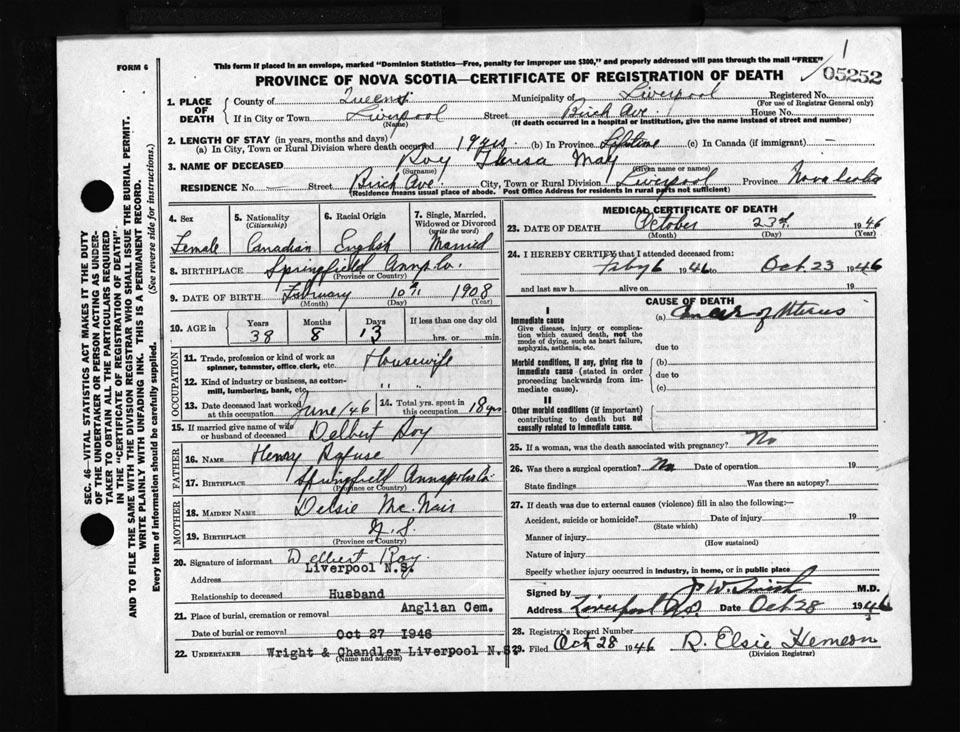 FORM 6
This form if placed in an envelope, marked "Dominion Statistics—Free, penalty for improper use $300," and properly addressed will pass through the mail "FREE"
1
PROVINCE OF NOVA SCOTIA—CERTIFICATE OF REGISTRATION OF DEATH
05252
1. PLACE OF DEATH County of Queens Municipality of Liverpool Registered No.
(For use of Registrar General only)
If in City or Town Liverpool Street Birch Ave. House No.
(Name) (If death occurred in a hospital or institution, give the name instead of street and number)
2. LENGTH OF STAY (in years, months and days)
(a) In City, Town or Rural Division where death occurred 19 yrs (b) In Province Lifetime (c) In Canada (if immigrant) —
3. NAME OF DECEASED Roy Theresa May
(Surname) (Given name or names)
RESIDENCE No. — Street Birch Ave. City, Town or Rural Division Liverpool Province Nova Scotia
(Residence means usual place of abode. Post Office Address for residents in rural parts not sufficient)
4. Sex Female
5. Nationality (Citizenship) Canadian
6. Racial Origin English
7. Single, Married, Widowed or Divorced (write the word) Married
8. BIRTHPLACE Springfield Anna Co.
(Province or Country)
9. DATE OF BIRTH February 10th 1908
(Month) (Day) (Year)
10. AGE in Years 38 Months 8 Days 13 If less than one day old hrs. or min.
OCCUPATION
11. Trade, profession or kind of work as spinner, teamster, office clerk, etc. Housewife
12. Kind of industry or business, as cotton-mill, lumbering, bank, etc. " "
13. Date deceased last worked at this occupation June/46 14. Total yrs. spent in this occupation 18 yrs
15. If married give name of wife or husband of deceased Delbert Roy
FATHER
16. NAME Henry Rafuse
17. BIRTHPLACE Springfield Annapolis Co.
(Province or Country)
MOTHER
18. MAIDEN NAME Delsie McNair
19. BIRTHPLACE N.S.
(Province or Country)
20. Signature of informant Delbert Roy.
Address Liverpool N.S.
Relationship to deceased Husband
21. Place of burial, cremation or removal Anglian Cem.
Date of burial or removal Oct 27 1946
22. UNDERTAKER Wright & Chandler Liverpool N.S.
(Name and address)
MEDICAL CERTIFICATE OF DEATH
23. DATE OF DEATH October 23rd. 1946
(Month) (Day) (Year)
24. I HEREBY CERTIFY that I attended deceased from:
Feby 6 1946 to Oct. 23 1946
and last saw h alive on 19
CAUSE OF DEATH
I
Immediate cause (a) Cancer of Uterus
Give disease, injury or complication which caused death, not the mode of dying, such as heart failure, asphyxia, asthenia, etc.
due to
Morbid conditions, if any, giving rise to immediate cause (stated in order proceeding backwards from immediate cause).
(b)
due to
(c)
II
Other morbid conditions (if important) contributing to death but not causally related to immediate cause.
25. If a woman, was the death associated with pregnancy? No
26. Was there a surgical operation? No Date of operation 19
State findings Was there an autopsy?
27. If death was due to external causes (violence) fill in also the following:—
Accident, suicide or homicide? Date of injury 19
(State which)
Manner of injury
(How sustained)
Nature of injury
Specify whether injury occurred in industry, in home, or in public place
Signed by M.D.
Address Liverpool N.S. Date Oct 28 1946
28. Registrar's Record Number
29. Filed Oct 28 1946 R. Elsie Hemeon
(Division Registrar)
SEC. 46—VITAL STATISTICS ACT MAKES IT THE DUTY
OF THE UNDERTAKER OR PERSON ACTING AS UNDER-
TAKER TO OBTAIN ALL THE PARTICULARS REQUIRED
IN THE "CERTIFICATE OF REGISTRATION OF DEATH"
AND TO FILE THE SAME WITH THE DIVISION REGISTRAR WHO SHALL ISSUE THE BURIAL PERMIT.
WRITE PLAINLY WITH UNFADING INK. THIS IS A PERMANENT RECORD.
Every item of information should be carefully supplied. (See reverse side for instructions.)